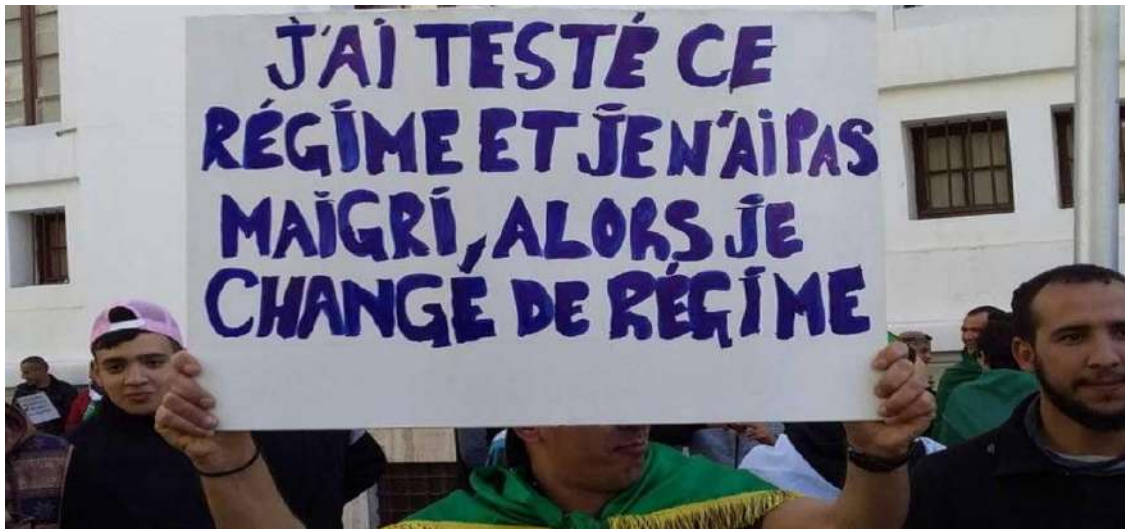 J'AI TESTÉ CE
RÉGIME ET JE N'AI PAS
MAIGRI, ALORS JE
CHANGE DE RÉGIME